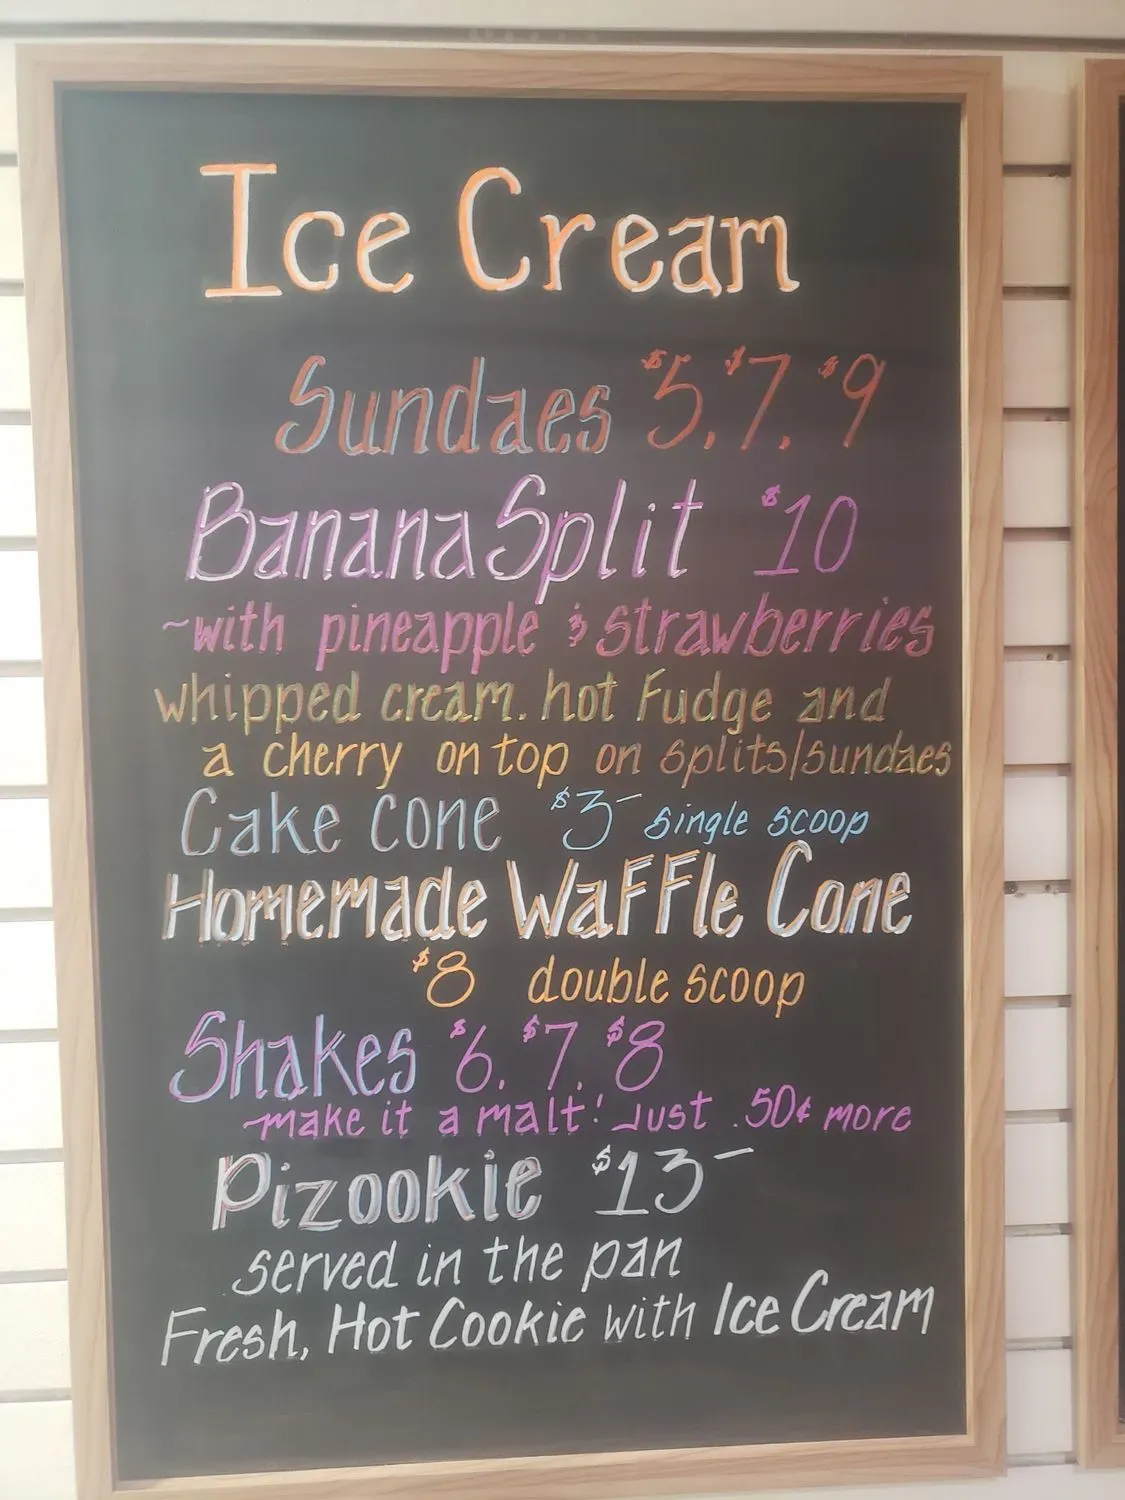 Ice Cream
Sundaes $5, $7, $9
Banana Split $10
~with pineapple & strawberries
whipped cream. hot Fudge and
a cherry on top on splits/sundaes
Cake cone $3- single scoop
Homemade WaFFle Cone
$8 double scoop
Shakes $6, $7, $8
~make it a malt! Just .50¢ more
Pizookie $13-
served in the pan
Fresh, Hot Cookie with Ice Cream